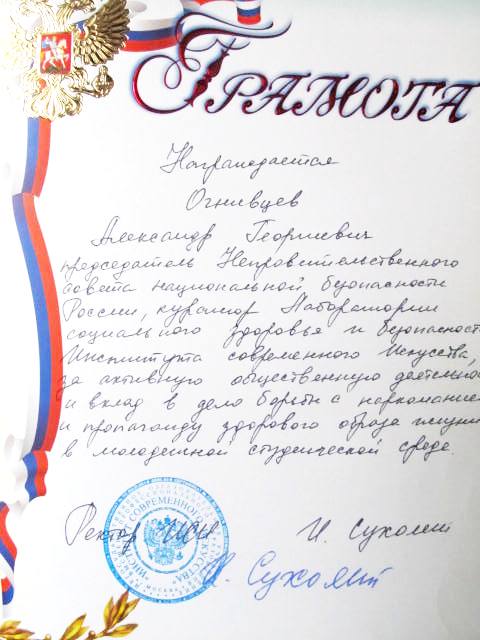 ГРАМОТА
Награждается
Огнивцев
Александр Георгиевич
председатель Неправительственного
совета национальной безопасности
России, куратор Лаборатории
социального здоровья и безопасност
Института современного Искусства,
за активную общественную деятельнос
и вклад в дело борьбы с наркоманией
и пропаганду здорового образа жизни
в молодежной студенческой среде.
Ректор ИСИ И. Сухолет
СОВРЕМЕННОГО ИСКУССТВА
И. Сухолет